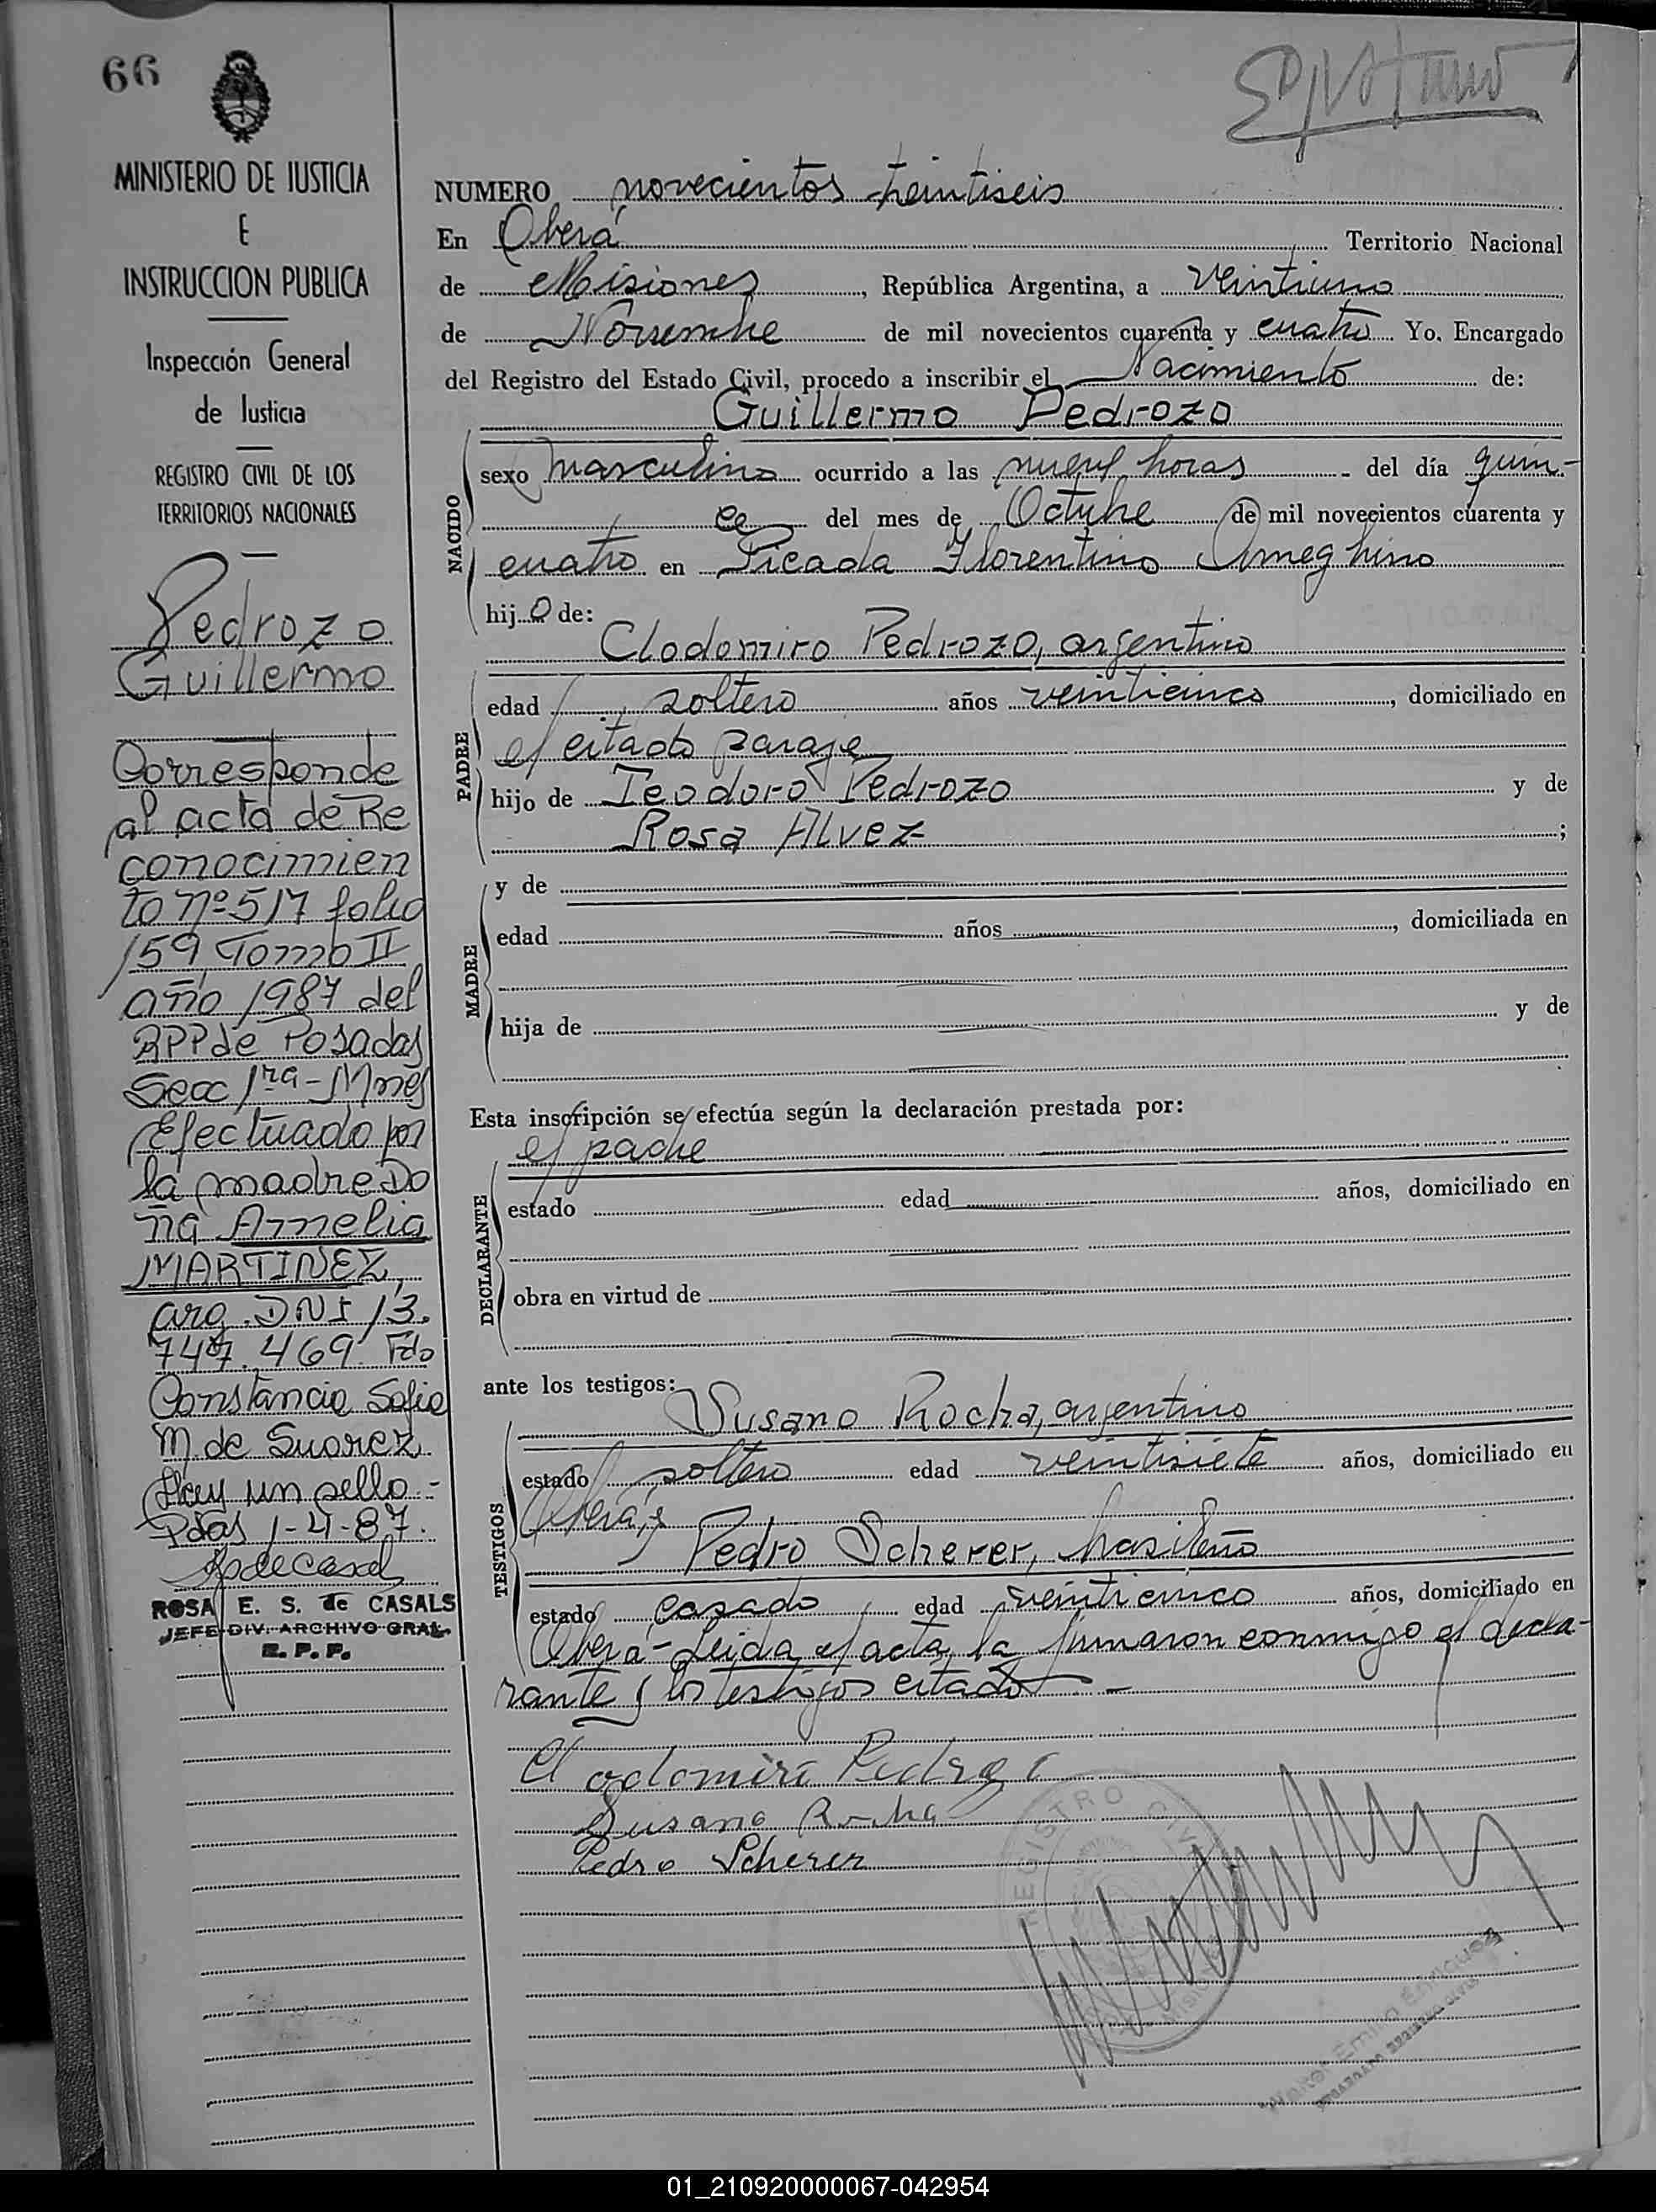 66
MINISTERIO DE JUSTICIA
E
INSTRUCCION PUBLICA
Inspección General
de Justicia
REGISTRO CIVIL DE LOS
TERRITORIOS NACIONALES
Pedrozo
Guillermo
Corresponde
al acta de Re
conocimien
to nº 517 folio
159 Tomo II
año 1987 del
RPP de Posadas
Secc 1ra - Mnes
Efectuado por
la madre Do
ña Amelia
MARTINEZ,
arg. DNI 13.
747.469 Fdo
Constancia Sofia
M. de Suarez
Hay un sello.-
Pdas 1-4-87.
ROSA E. S. de CASALS
JEFE DIV. ARCHIVO GRAL.
R. P. P.
NUMERO novecientos treintiseis
En Oberá Territorio Nacional
de Misiones, República Argentina, a veintiuno
de Noviembre de mil novecientos cuarenta y cuatro Yo. Encargado
del Registro del Estado Civil, procedo a inscribir el Nacimiento de:
Guillermo Pedrozo
NACIDO
sexo masculino ocurrido a las nueve horas del día quin-
ce del mes de Octubre de mil novecientos cuarenta y
cuatro en Picada Florentino Ameghino
hijo de:
Clodomiro Pedrozo, argentino
PADRE
edad soltero años veinticinco, domiciliado en
el citado paraje
hijo de Teodoro Pedrozo y de
Rosa Alvez ;
MADRE
y de
edad años , domiciliada en
hija de y de
Esta inscripción se efectúa según la declaración prestada por:
el padre
DECLARANTE
estado edad años, domiciliado en
obra en virtud de
ante los testigos:
Susano Rocha, argentino
TESTIGOS
estado soltero edad veintisiete años, domiciliado en
Oberá, y
Pedro Scherer, brasileño
estado casado edad veinticinco años, domiciliado en
Oberá - Leida el acta, la firmaron conmigo el decla-
rante y los testigos citados -
Clodomiro Pedrozo
Susano Rocha
Pedro Scherer
REGISTRO CIVIL
MISIONES
Emilio Enriquez
ENCARGADO REGISTRO CIVIL
01_210920000067-042954